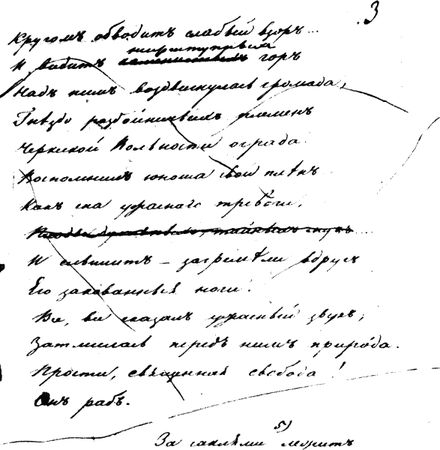 3
Кругомъ обводитъ слабый взоръ...
неприступныхъ
И видитъ горъ
Надъ нимъ воздвигнулась громада,
Гнѣздо разбойничьихъ племенъ
Черкеской вольности ограда.
Воспомнилъ юноша свой плѣнъ
Какъ сна ужаснаго тревоги,
И слышитъ – загремѣли вдругъ
Его закованныя ноги.
Все, все сказалъ ужасный звукъ,
Затмилась передъ нимъ природа.
Прости, священная свобода!
Онъ рабъ.
5)
За саклями лежитъ